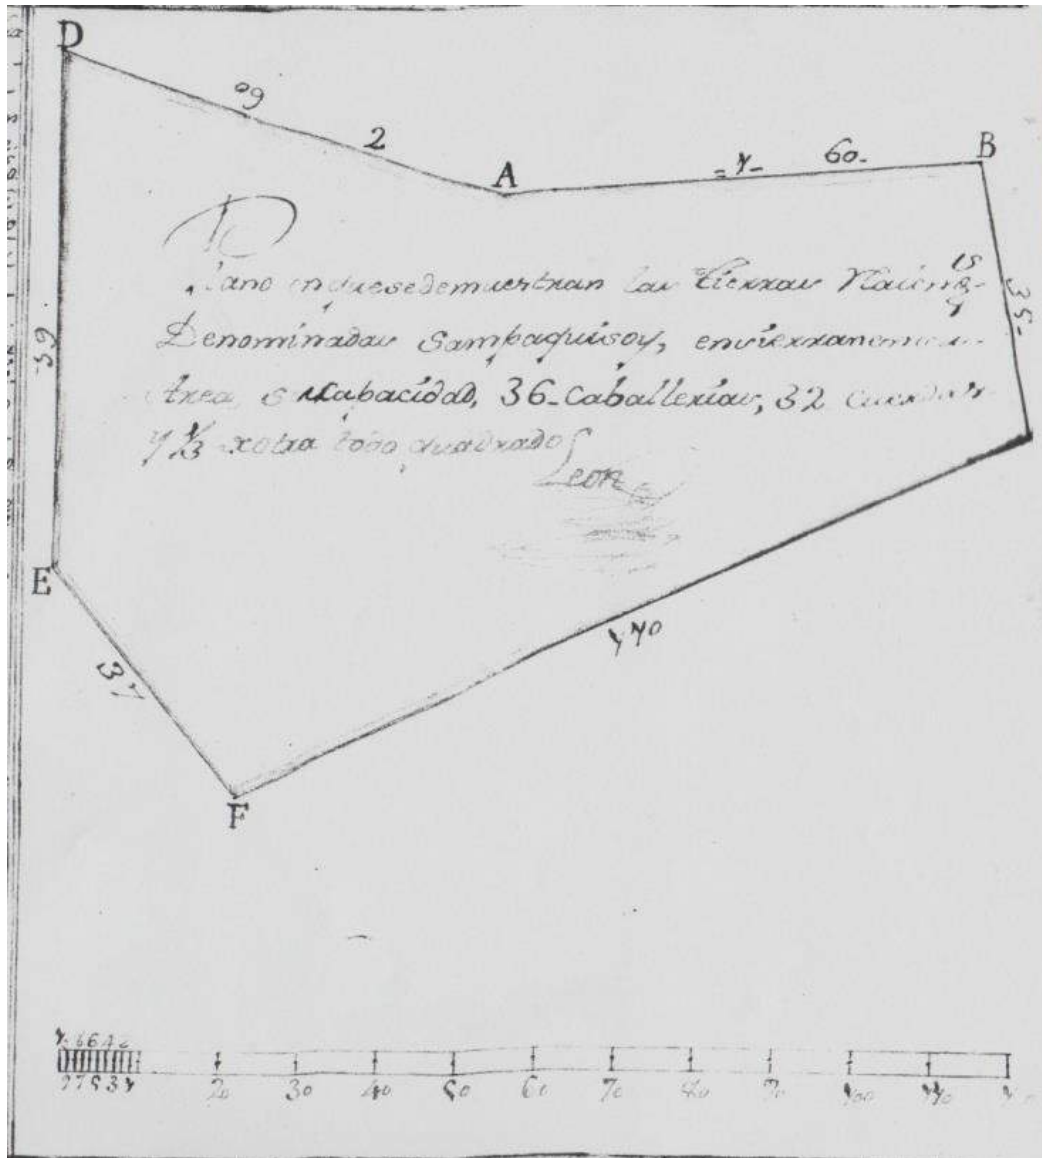 D
60
2
A
60-
B
35-
39
Plano en que se demuestran las tierras
Denominadas Sampaquisoy, encierran
Area, Cabacidad, 36-Caballerias, 32 cuerdas
y 1/3 x otra todo quadrado
Leon
E
37
F
110
20 30 40 50 60 70 80 90 100 110